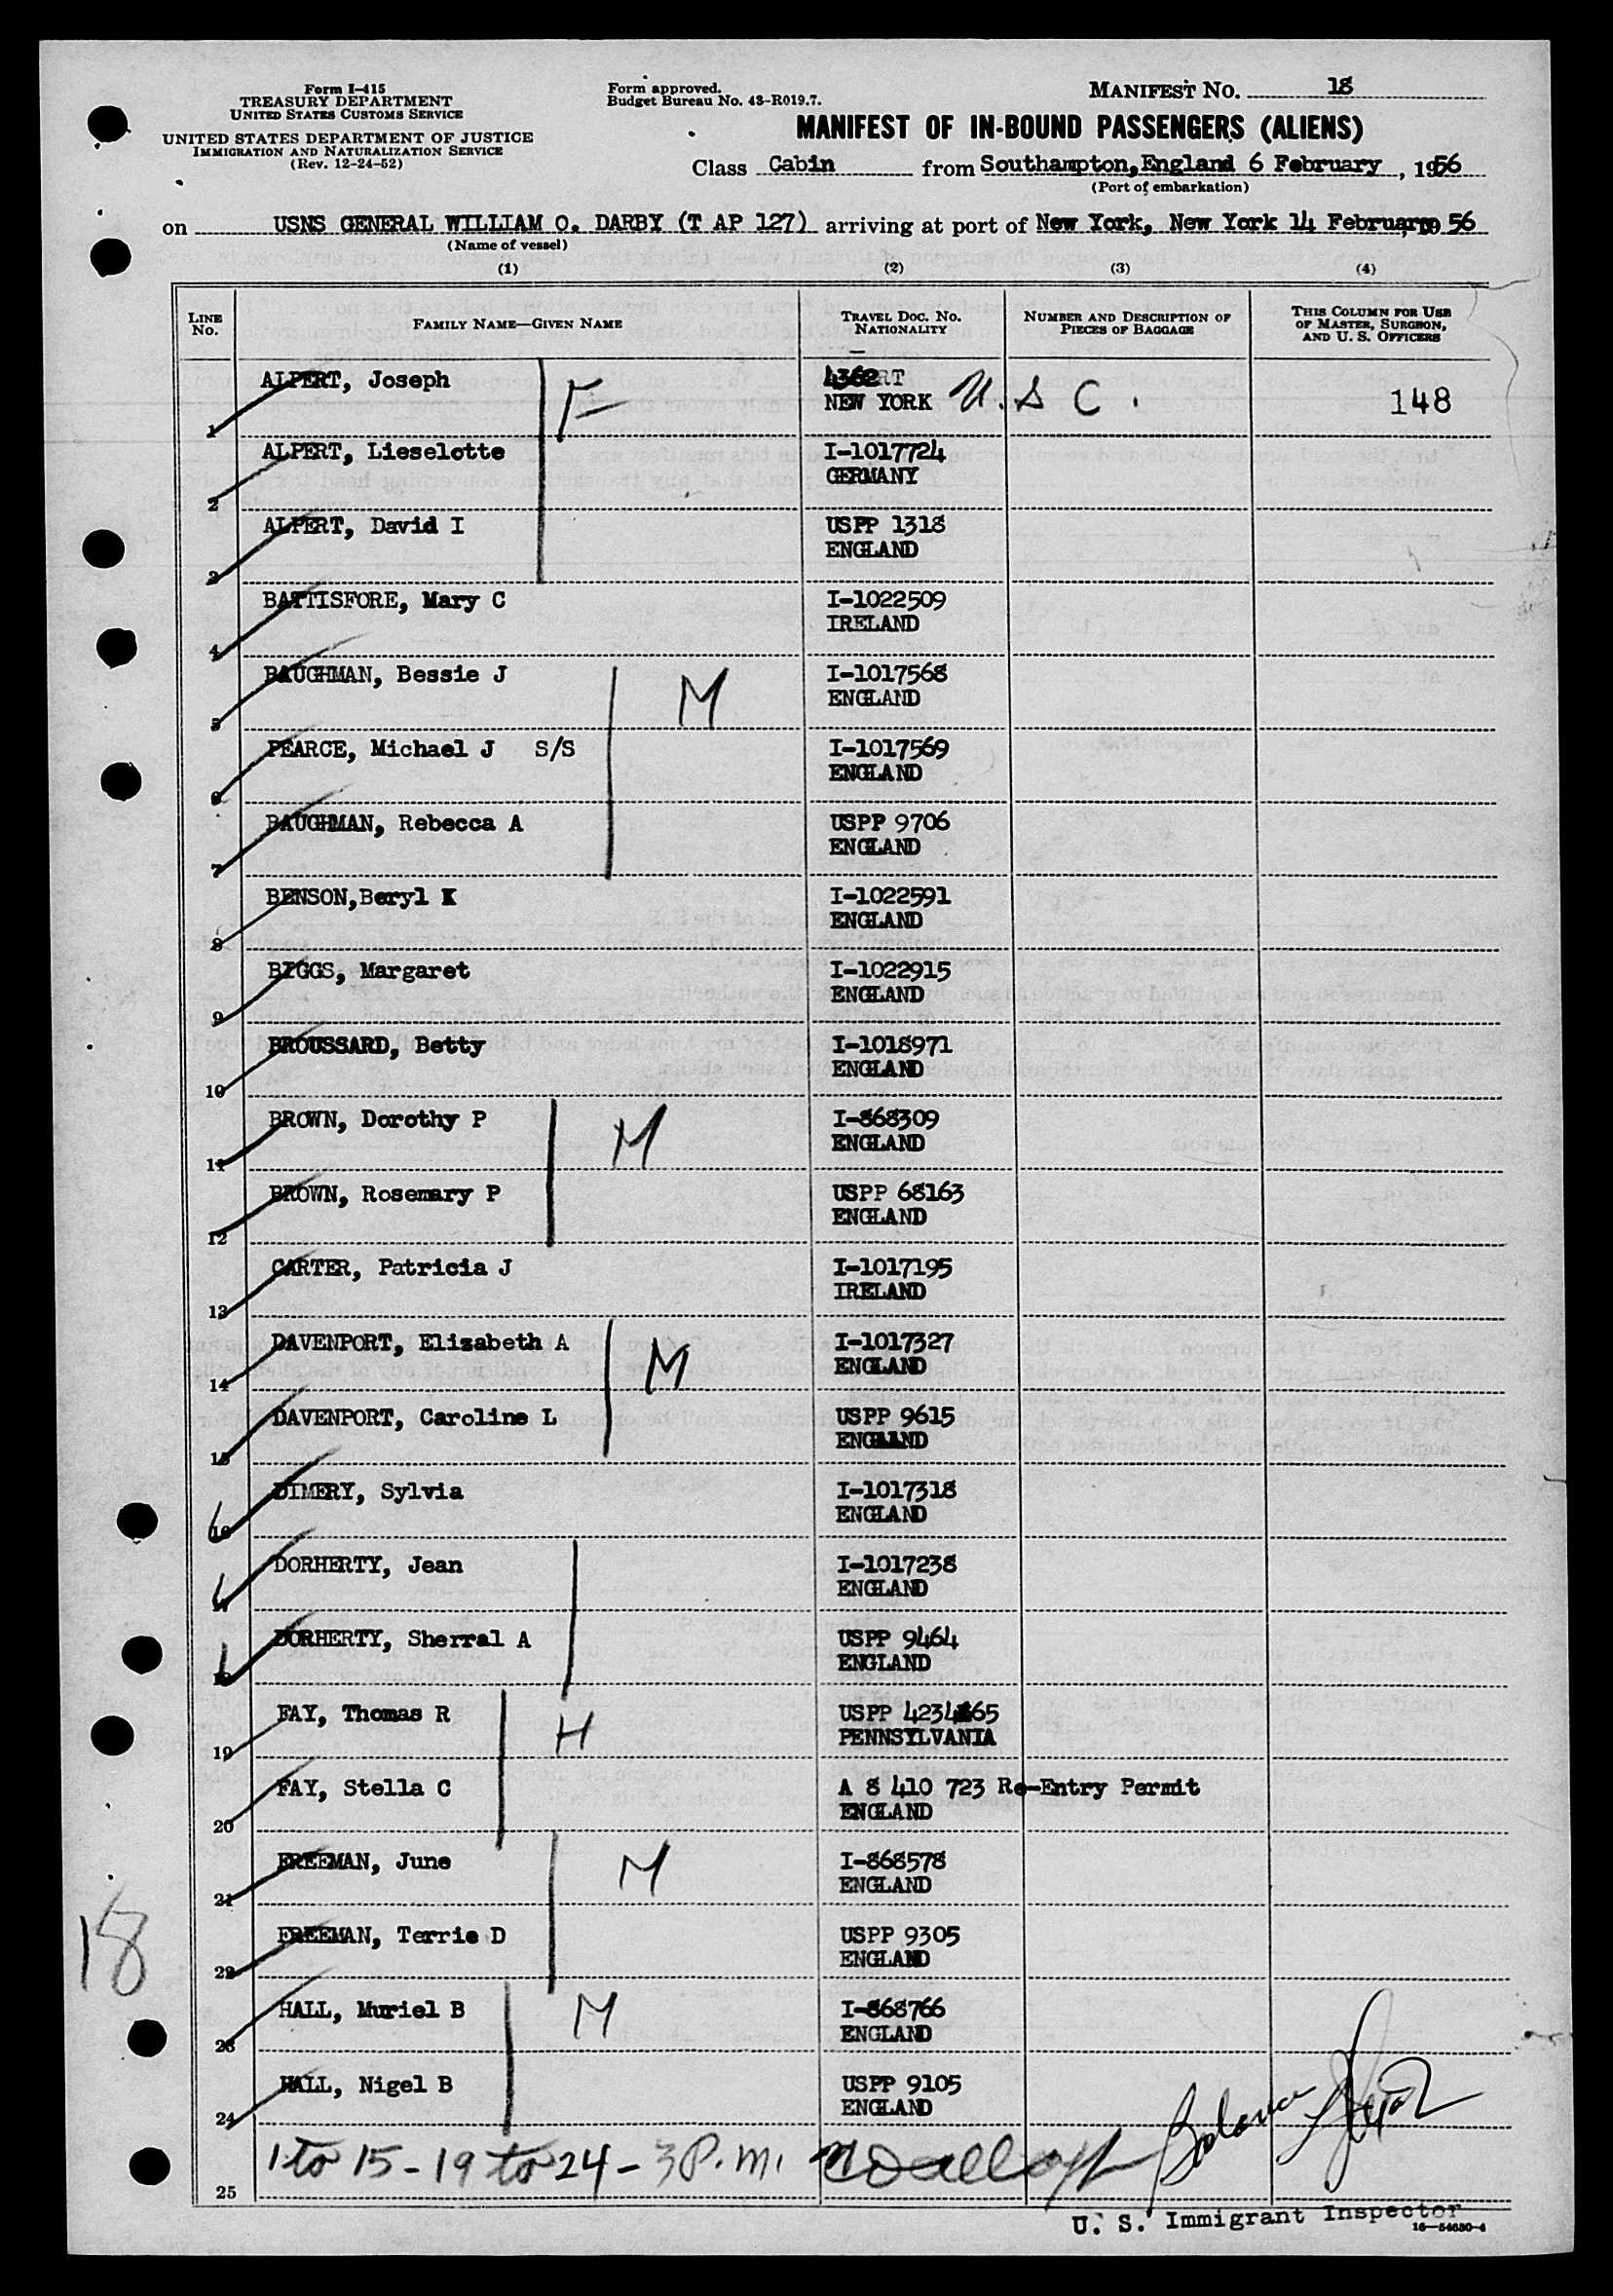 Form I-415
TREASURY DEPARTMENT
UNITED STATES CUSTOMS SERVICE
UNITED STATES DEPARTMENT OF JUSTICE
IMMIGRATION AND NATURALIZATION SERVICE
(Rev. 12-24-52)
Form approved.
Budget Bureau No. 43-R019.7.
MANIFEST NO. 18
MANIFEST OF IN-BOUND PASSENGERS (ALIENS)
Class Cabin from Southampton, England 6 February, 1956
(Port of embarkation)
on USNS GENERAL WILLIAM O. DARBY (T AP 127) arriving at port of New York, New York 14 February 56
(Name of vessel)
(1) (2) (3) (4)
LINE NO. FAMILY NAME—GIVEN NAME TRAVEL DOC. NO. NATIONALITY NUMBER AND DESCRIPTION OF PIECES OF BAGGAGE THIS COLUMN FOR USE OF MASTER, SURGEON, AND U. S. OFFICERS
1 ALPERT, Joseph F 4362 NEW YORK U. S C. 148
2 ALPERT, Lieselotte I-1017724 GERMANY
3 ALPERT, David I USPP 1318 ENGLAND
4 BATTISFORE, Mary C I-1022509 IRELAND
5 BAUGHMAN, Bessie J M I-1017568 ENGLAND
6 PEARCE, Michael J S/S I-1017569 ENGLAND
7 BAUGHMAN, Rebecca A USPP 9706 ENGLAND
8 BENSON,Beryl K I-1022591 ENGLAND
9 BIGGS, Margaret I-1022915 ENGLAND
10 BROUSSARD, Betty I-1018971 ENGLAND
11 BROWN, Dorothy P M I-868309 ENGLAND
12 BROWN, Rosemary P USPP 68163 ENGLAND
13 CARTER, Patricia J I-1017195 IRELAND
14 DAVENPORT, Elizabeth A M I-1017327 ENGLAND
15 DAVENPORT, Caroline L USPP 9615 ENGLAND
16 DIMERY, Sylvia I-1017318 ENGLAND
17 DORHERTY, Jean I-1017238 ENGLAND
18 DORHERTY, Sherral A USPP 9464 ENGLAND
19 FAY, Thomas R H USPP PENNSYLVANIA
20 FAY, Stella C A 8 410 723 Re-Entry Permit ENGLAND
21 FREEMAN, June M I-868578 ENGLAND
22 FREEMAN, Terrie D USPP 9305 ENGLAND
23 HALL, Muriel B M I-868766 ENGLAND
24 HALL, Nigel B USPP 9105 ENGLAND
25 1 to 15 - 19 to 24 - 3 P.M. Balance
18
U. S. Immigrant Inspector
16—54630-4